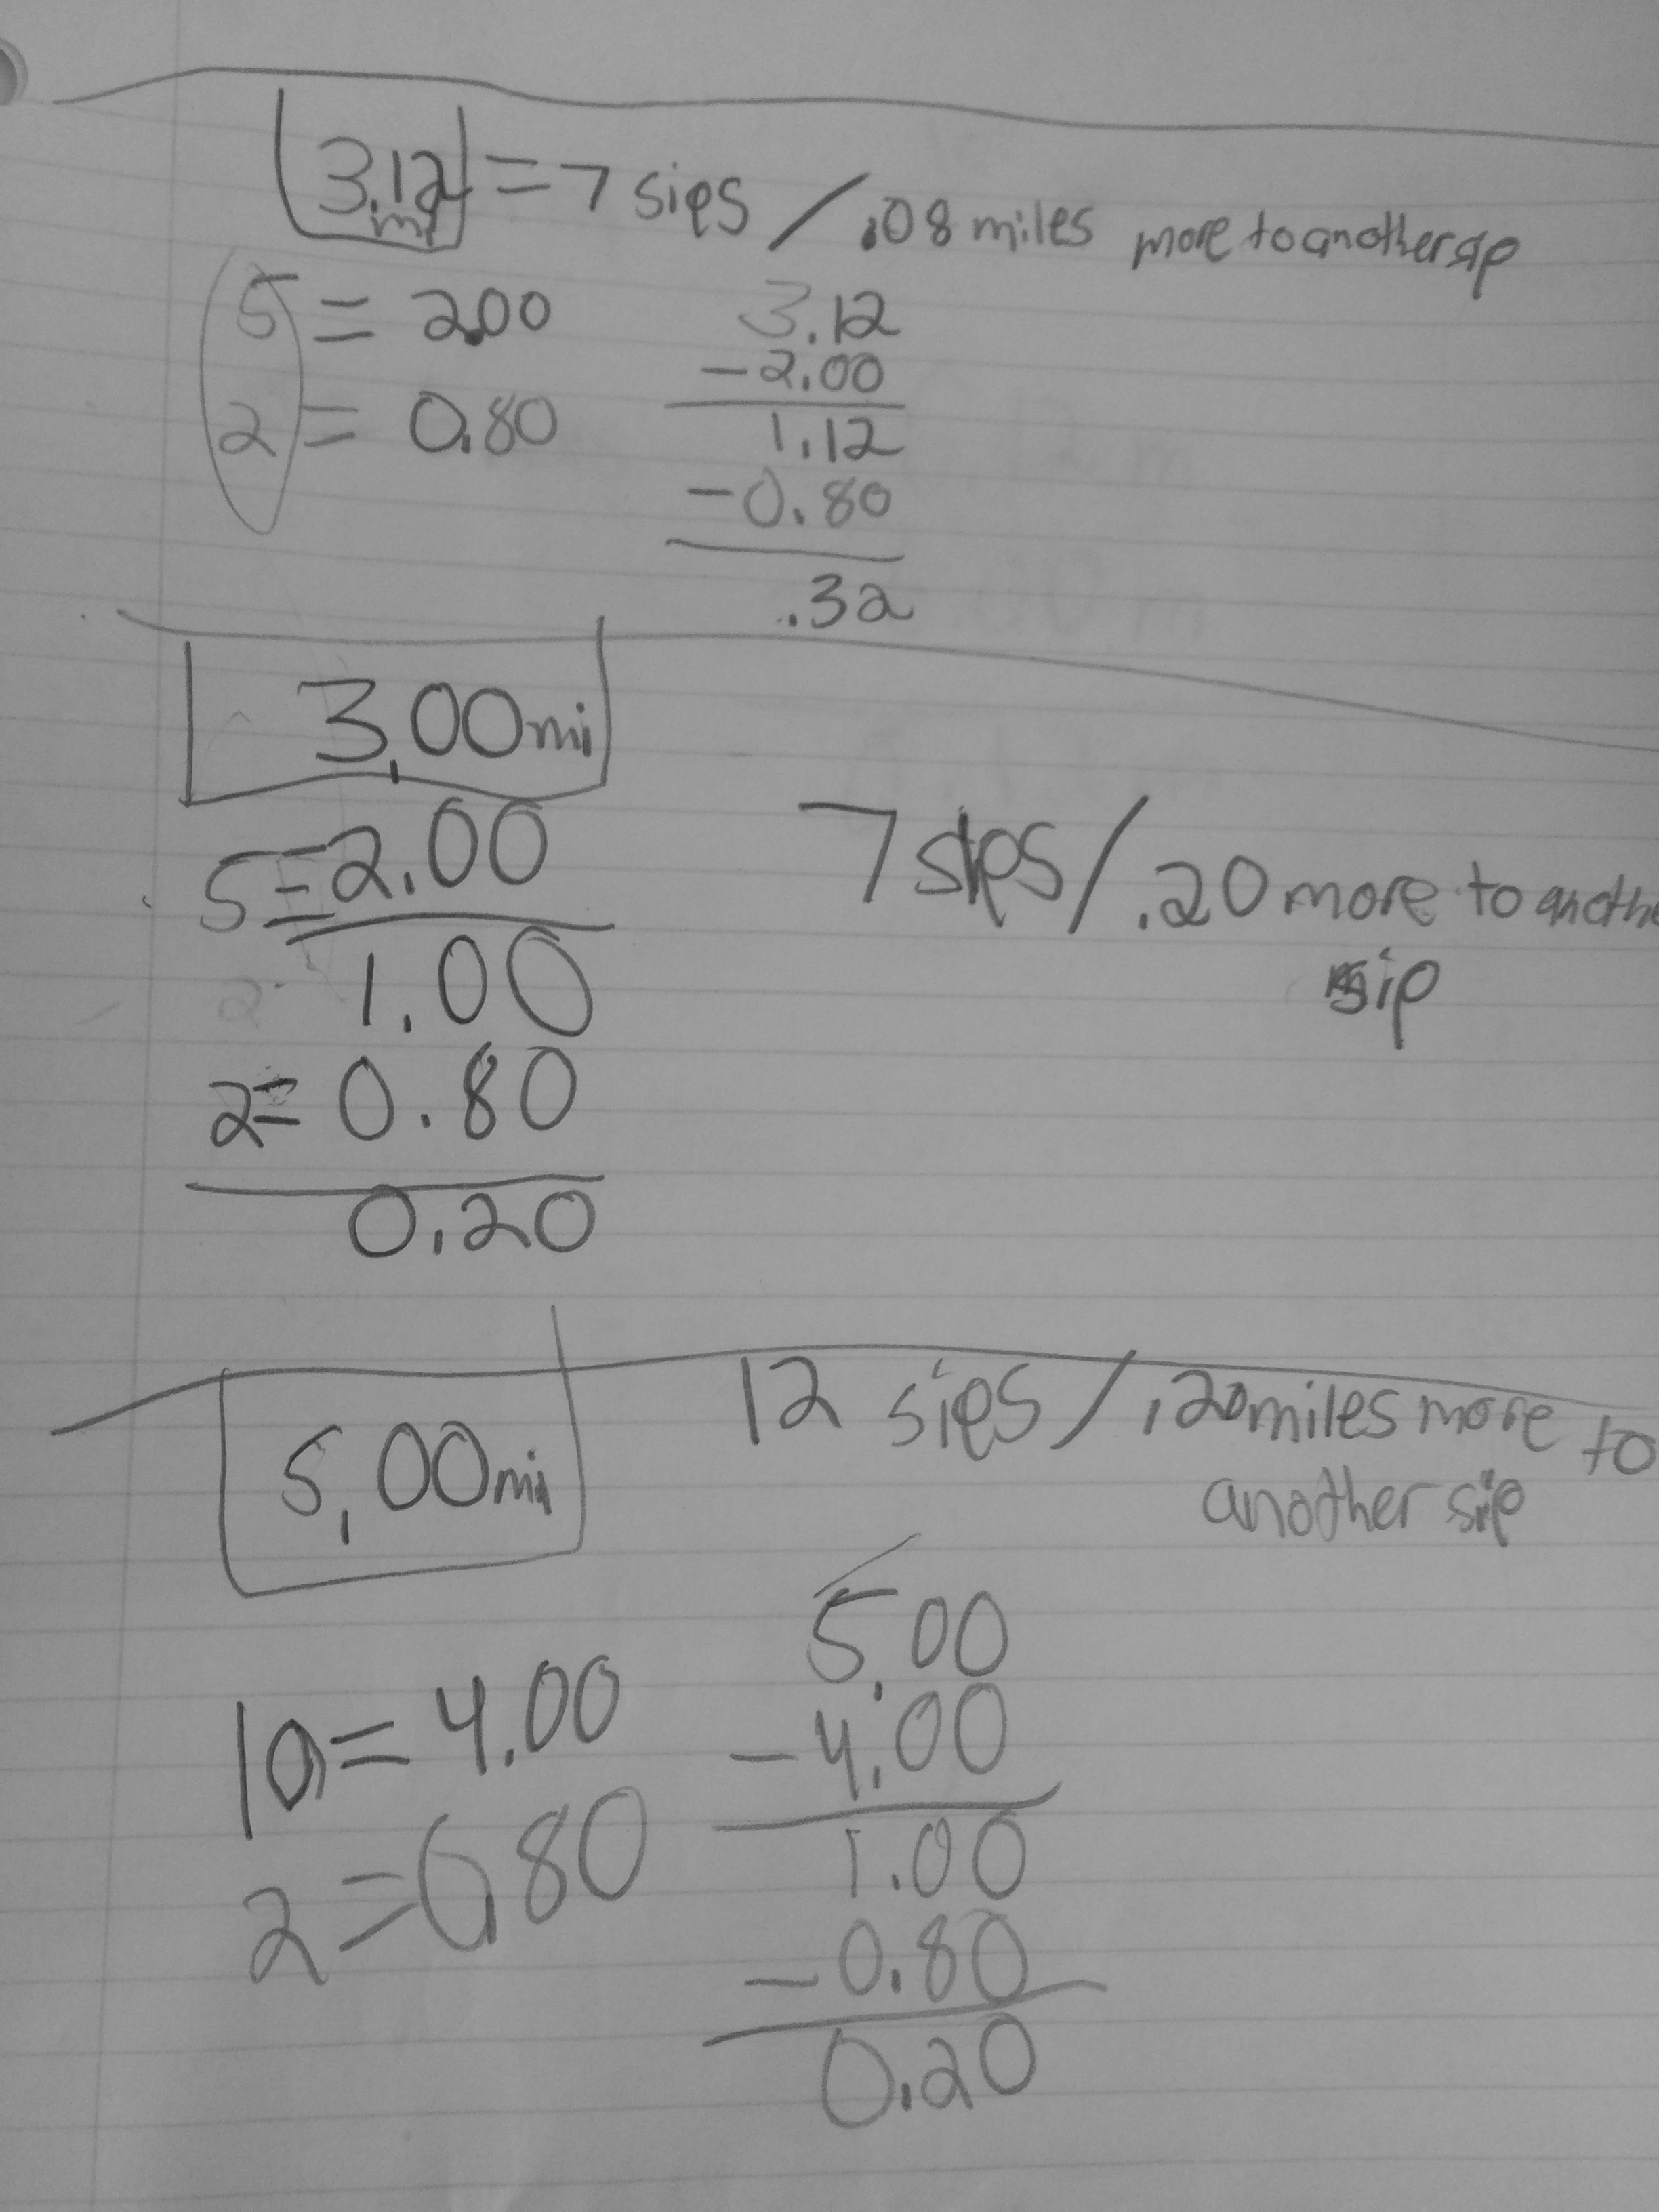 3.12 = 7 sips / .08 miles more to another sip
mi
5 = 2.00
2 = 0.80
3.12
-2.00
1.12
-0.80
.32
3.00mi
5=2.00
1.00
2= 0.80
0.20
7 sips / .20 more to anothe
sip
5.00mi
12 sips / .20 miles more to
another sip
10=4.00
2=0.80
5.00
-4.00
1.00
-0.80
0.20